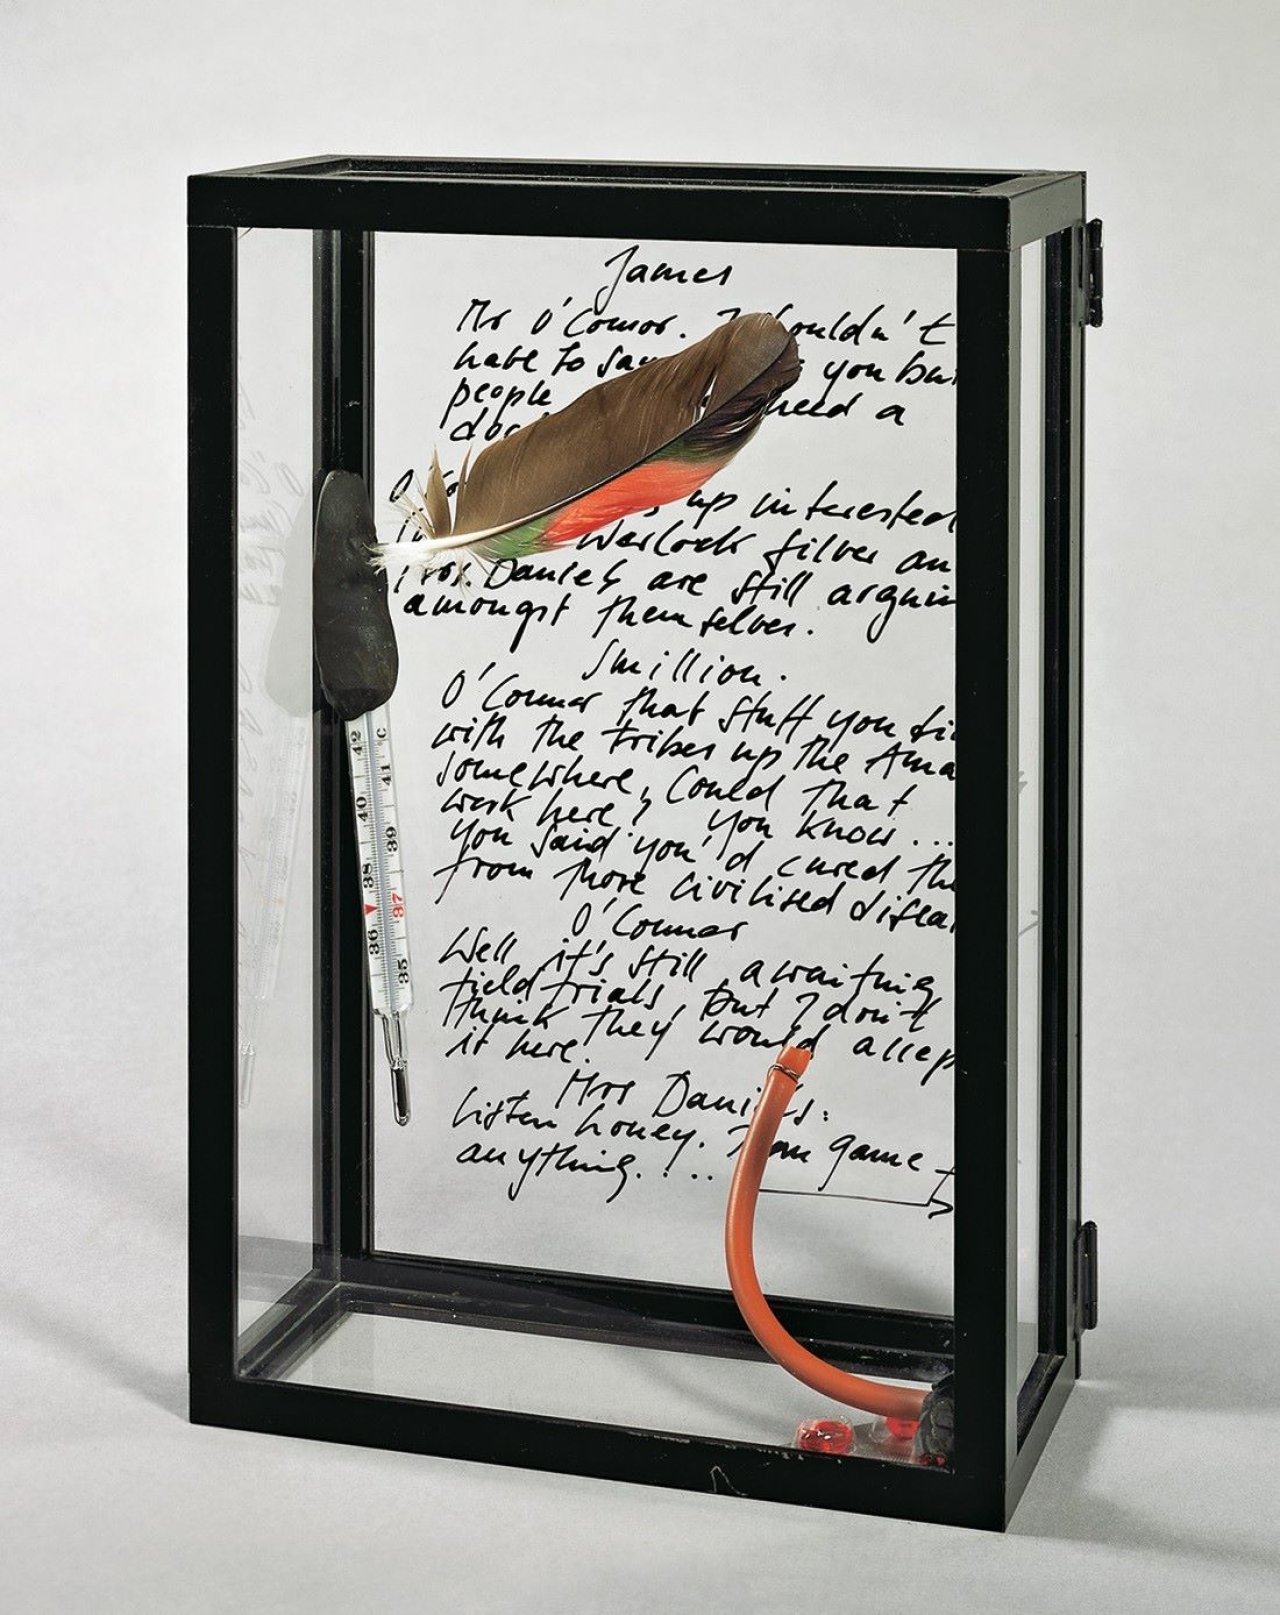 James
Mr O'Connor. I wouldn't
hate to say you but
people need a
doc
O'Co up interested
Warlock Silver an
Mrs. Daniels are still arguin
amongst themselves.
Smillion.
O'Connor that stuff you di
with the tribes up the Ama
somewhere, Could that
work here, you know...
You said you'd cured the
from those civilised disea
O'Connor
Well it's still awaiting
field trials, but I don't
think they would accep
it here.
Mrs Daniels:
Listen honey. I'm game
anything. ...
42 °C
41
40
39
38
37
36
35